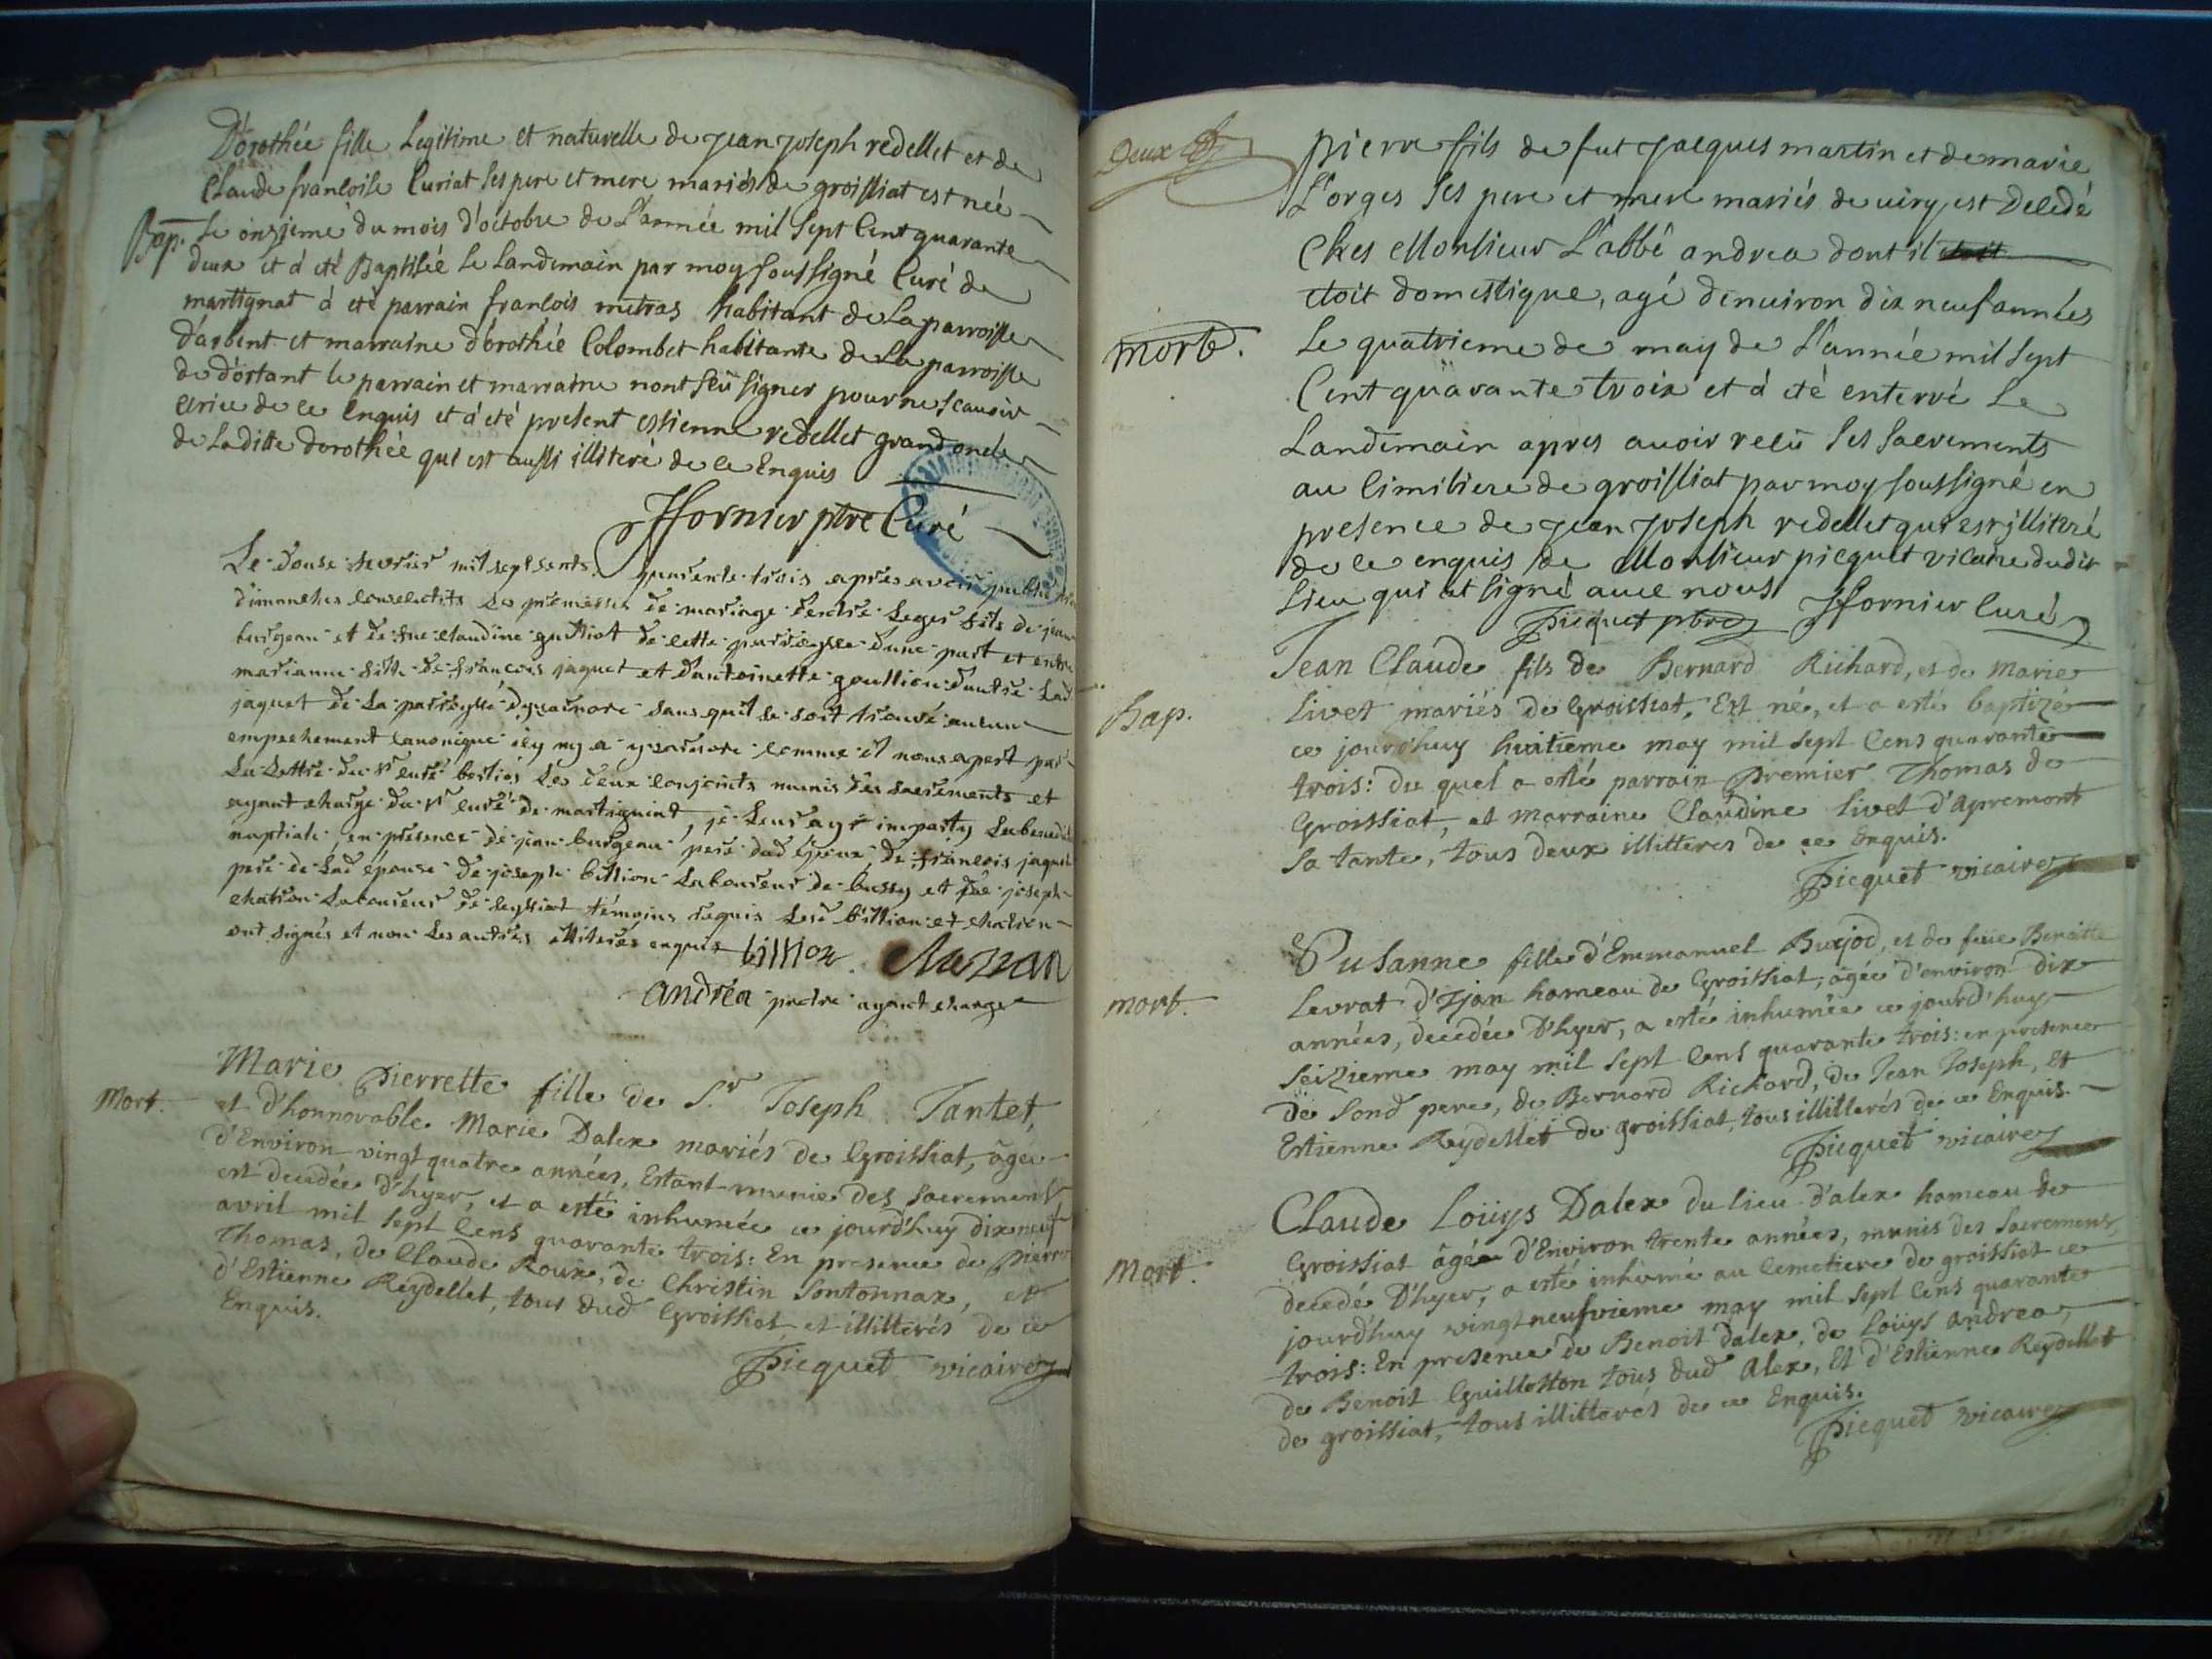 Dorothée fille Legitime et naturelle de jean joseph redellet et de
Claude francoise Curiat ses pere et mere mariés de groissiat est née
Bap. le onzieme du mois d'octobre de L'année mil sept Cent quarante
deux et à été Baptisée le landemain par moy soussigné Curé de
martignat à eté parrain francois mitras habitant de la parroisse
d'arbent et marraine dorothée Colombet habitante de La parroisse
de dortant le parrain et marraine n'ont sçu signer pour ne scavoir
ecrire de ce enquis et à été present estienne redellet grand oncle
de Laditte dorothée qui est aussi illiteré de ce Enquis
Jfornier ptre Curé
Le douse fevrier mil sept sents quarente trois apres avoir publié
dimanches consecutifs les promesses de mariage d'entre Leger fils de jean
burgeau et de fue claudine guttiot de cette parroysse d'une part et entre
marianne fille de francois jaquet et d'antoinette goullion d'autre Lad
jaquet de La parroysse dysarnore sans quil se soit trouvé aucun
empechement canonique icy ny a ysarnore comme il nous apert par
La Lettre du sr curé bertiés Les deux conjoints munis des sacrements et
ayant charge du sr curé de martignint, je Leur ay imparty La benedi
nuptiale, en presence de jean burgeau pere dud epoux, de francois jaquet
pere de Lad épouse de joseph billion Laboureur de bussy et de joseph
chatron Laboureur de seyssiat témoins requis Lesd billion et chatron
ont signés et non Les autres illiterés enquis billion Chatron
andréa pretre ayant charge
Mort. Marie Pierrette fille de Sr Joseph Tantet,
et d'honnorable Marie Dalex mariés de Groissiat, âgée
d'Environ vingt quatre années, Estant munie des sacrements
est decedée d'hyer, et a esté inhumée ce jourd'huy dix neuf
avril mil sept Cens quarante trois: En presence de Pierre
Thomas, de Claude Roux, de Christin Sontonnax, et
d'Estienne Reydellet, tous dud Groissiat et illitterés de ce
Enquis.
Picquet vicaire
Deux
pierre fils de fut jacques martin et de marie
L'orges ses pere et mere mariés de viry est Decedé
Ches Monsieur L'abbé andrea dont il etoit
etoit domestique, agé d'enuiron dix neuf années
mort. Le quatrieme de may de L'année mil sept
Cent quarante troix et à été enterré Le
Landemain apres auoir recu ses sacrements
au Cimitiere de groissiat par moy soussigné en
presence de jean joseph redellet qui est jlliteré
de ce enquis de Monsieur picquet vicaire dudit
Lieu qui at signé auec nous
Picquet pbre Jfornier Curé
Jean Claude fils de Bernard Richard, et de Marie
Bap. Livet mariés de Groissiat, Est né, et a esté baptizé
ce jourd'huy huitieme may mil sept Cens quarante
trois: du quel a esté parrain Premier Thomas de
Groissiat, et marraine Claudine Livet d'Apremont
sa tante, tous deux illitteres de ce Enquis.
Picquet vicaire
Susanne fille d'Emmanuel Bugjod, et de feüe Benoitte
mort. Levrat d'Ijan hameau de Groissiat, âgée d'environ dix
années, decedée D'hyer, a esté inhumée ce jourd'huy
seizieme may mil sept Cens quarante trois: en presence
de sond pere, de Bernard Richard, de Jean Joseph, et
Estienne Reydellet de groissiat, tous illitterés de ce Enquis.
Picquet vicaire
Claude Loüys Dalex du lieu d'alex hameau de
Mort. Groissiat âgée d'Environ trente années, munis des Sacremens,
decedé D'hyer, a esté inhumé au Cemetiere de groissiat ce
jourd'huy vingt neufvieme may mil sept Cens quarante
trois: En presence de Benoit Dalex, de Loüys Andrea,
de Benoit Guillotton tous dud Alex, Et d'Estienne Reydellet
de groissiat, tous illitterés de ce Enquis.
Picquet vicaire